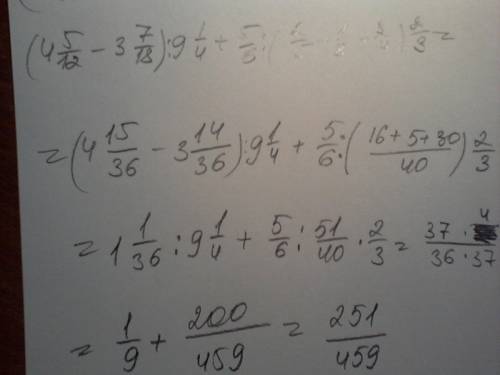 (4 5/12 − 3 7/18) : 9 1/4 + 5/6 : ( ) 2/3 =
= (4 15/36 − 3 14/36) : 9 1/4 + 5/6 : ((16+5+30)/40) 2/3
= 1 1/36 : 9 1/4 + 5/6 : 51/40 · 2/3 = (37 · 4)/(36 · 37)
= 1/9 + 200/459 = 251/459